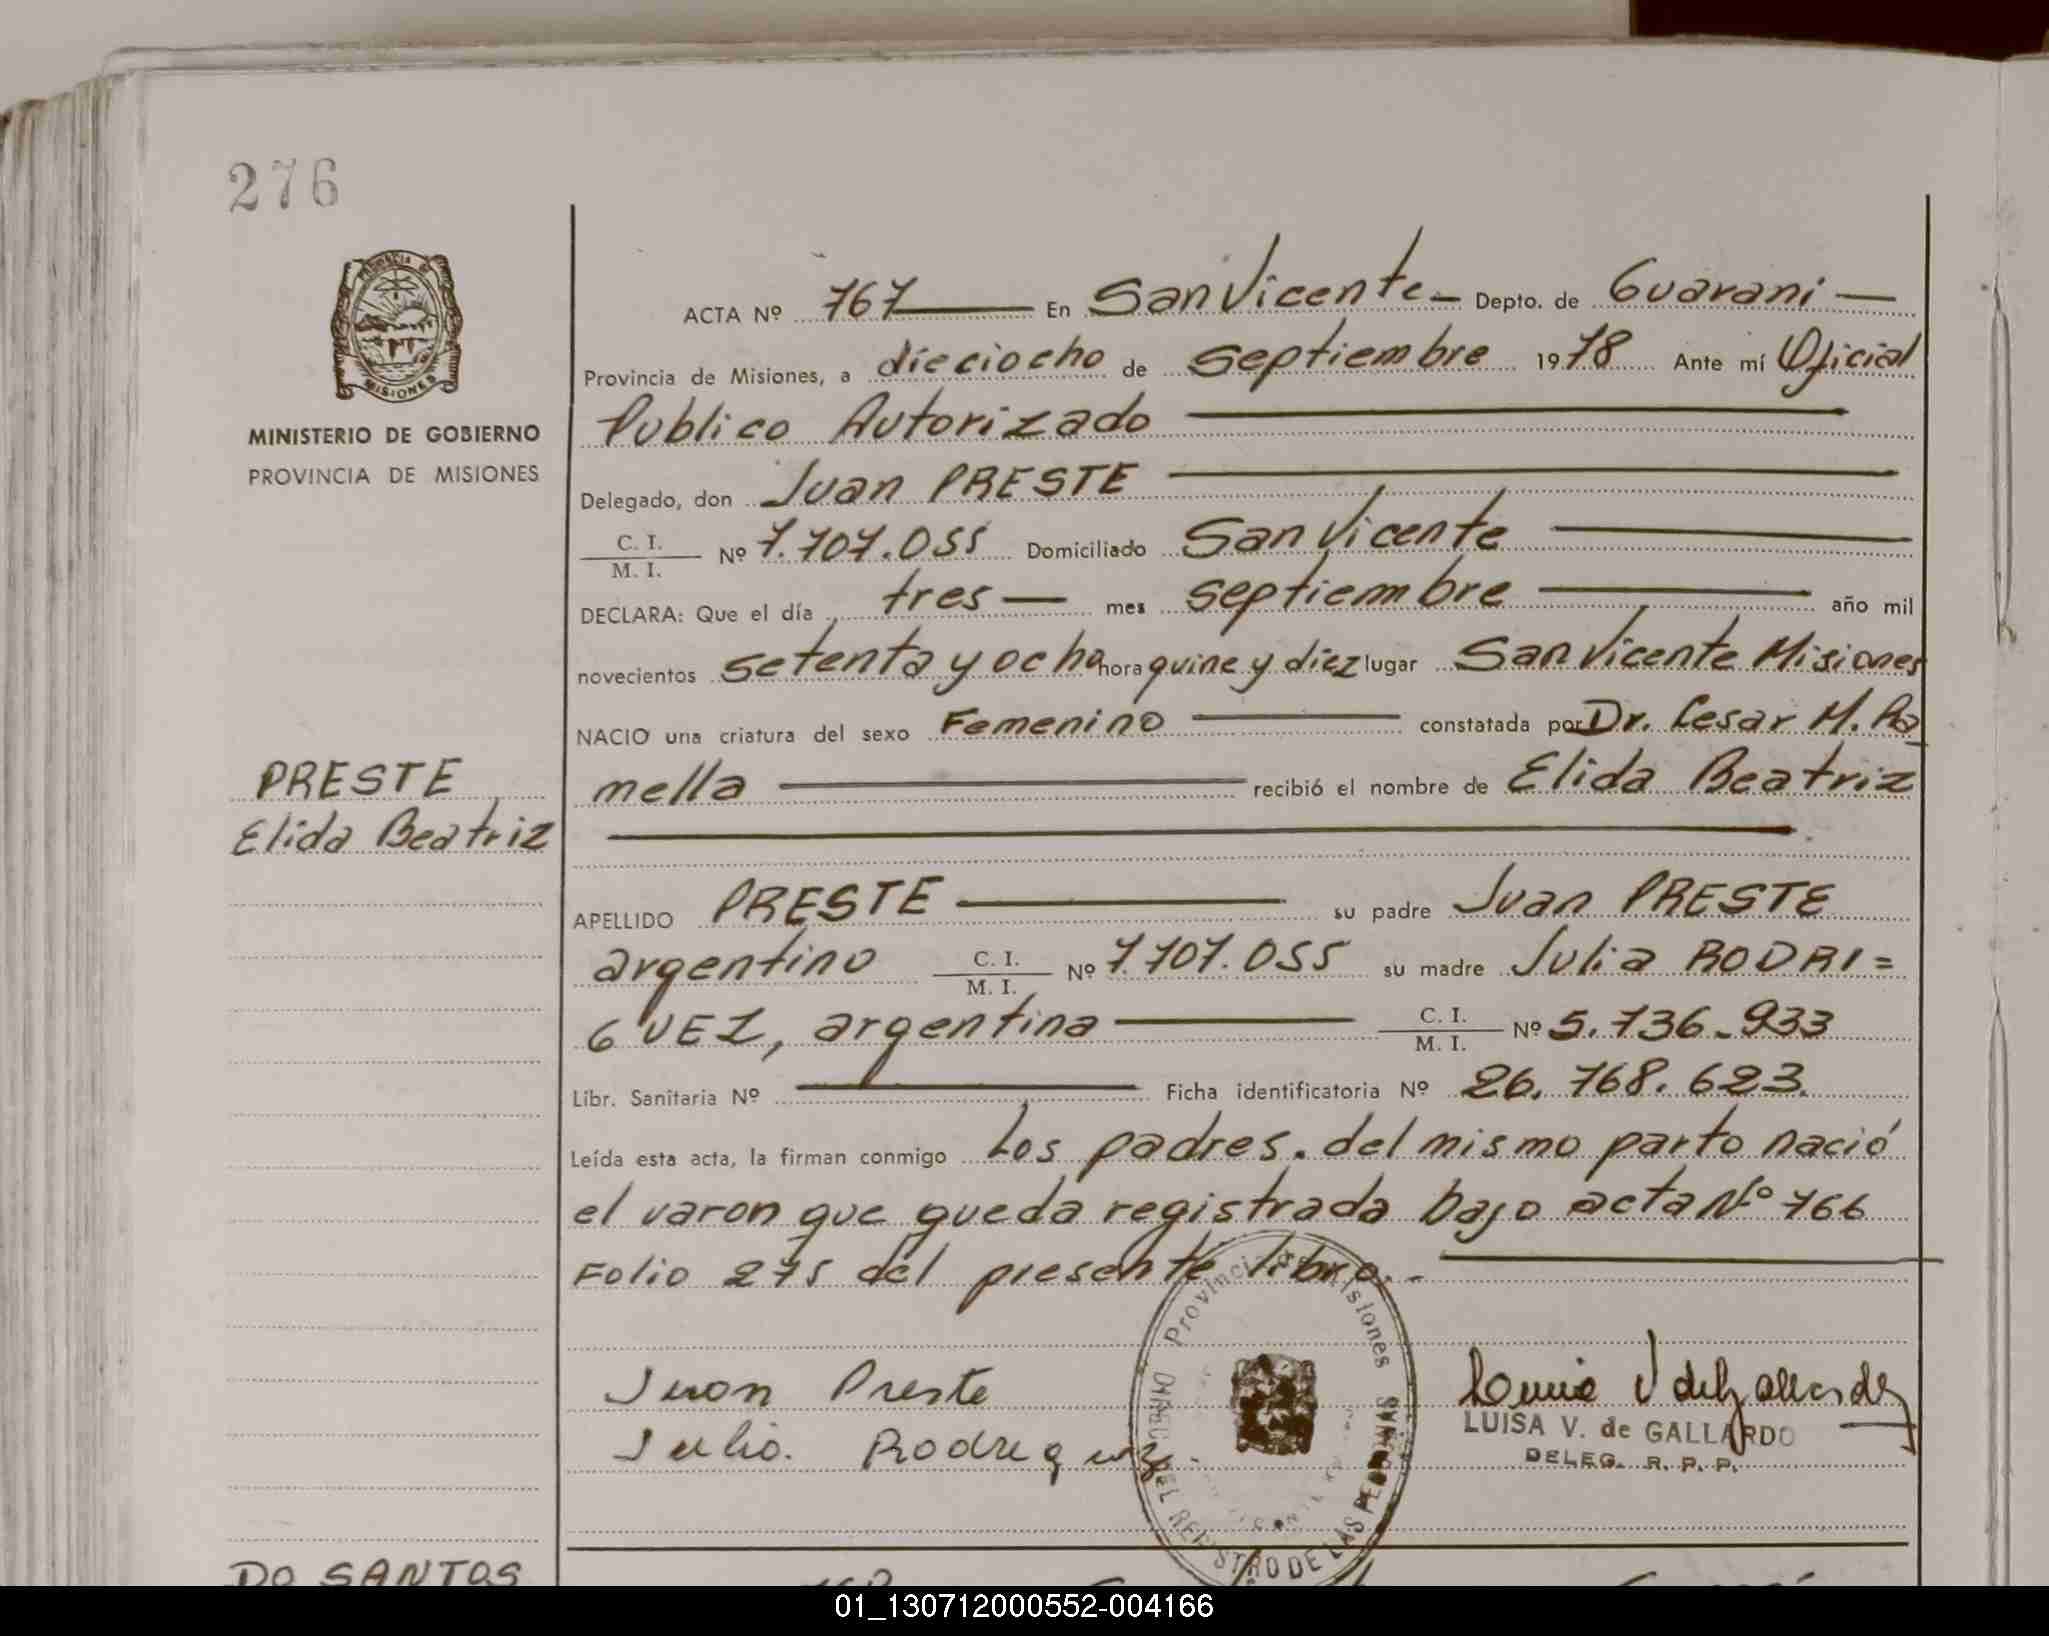 276
PROVINCIA DE
MISIONES
MINISTERIO DE GOBIERNO
PROVINCIA DE MISIONES
PRESTE
Elida Beatriz
ACTA Nº 767 En San Vicente - Depto. de Guarani -
Provincia de Misiones, a dieciocho de septiembre 1978 Ante mí Oficial
Publico Autorizado
Delegado, don Juan PRESTE
C. I.
M. I. Nº 7.707.055 Domiciliado San Vicente
DECLARA: Que el día tres mes septiembre año mil
novecientos setenta y ocho hora quine y diez lugar San Vicente Misiones
NACIO una criatura del sexo Femenino constatada por Dr. Cesar M. Ra
mella recibió el nombre de Elida Beatriz
APELLIDO PRESTE su padre Juan PRESTE
argentino C. I. M. I. Nº 7.707.055 su madre Julia RODRI=
GUEZ, argentina C. I. M. I. Nº 5.736.933
Libr. Sanitaria Nº Ficha identificatoria Nº 26.768.623.
Leída esta acta, la firman conmigo Los padres. del mismo parto nació
el varon que queda registrada bajo acta Nº 766
Folio 275 del presente libro.-
Provincia de Misiones
DEL REGISTRO DE LAS PERSONAS
Juan Preste
Julia. Rodriguez.
LUISA V. de GALLARDO
DELEG. R. P. P.
DO SANTOS
01_130712000552-004166